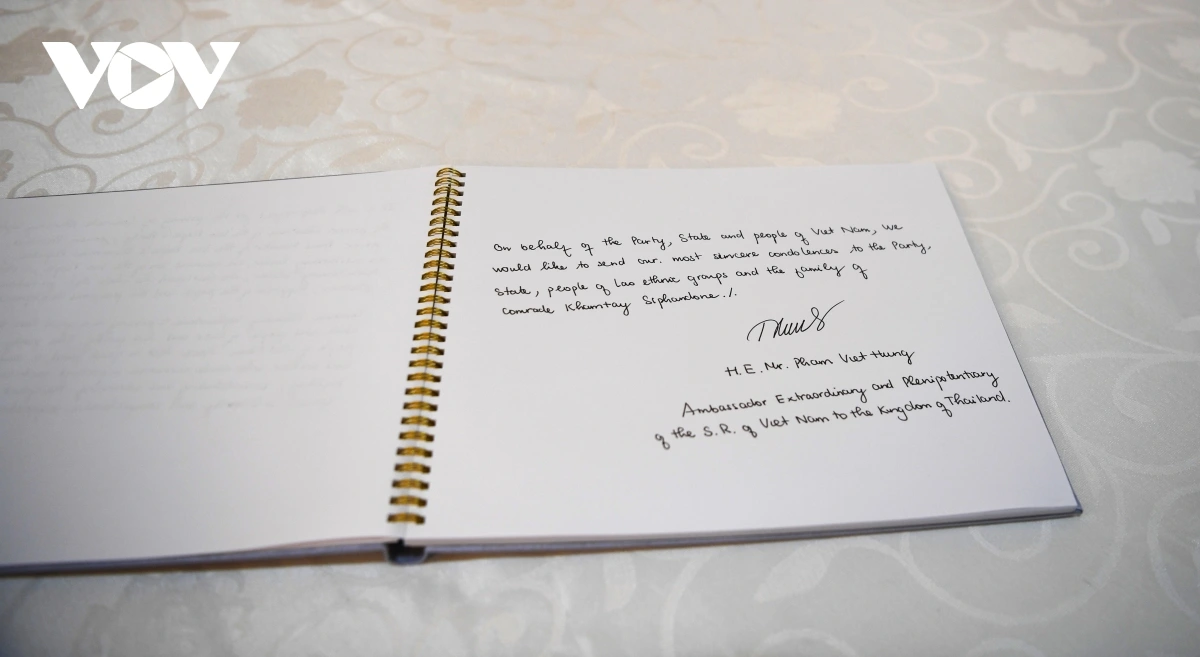 VOV
On behalf of the Party, State and people of Viet Nam, we
would like to send our. most sincere condolences to the Party,
State, people of Lao ethnic groups and the family of
comrade Khamtay Siphandone./.
H.E. Mr. Pham Viet Hung
Ambassador Extraordinary and Plenipotentiary
of the S.R. of Viet Nam to the Kingdom of Thailand.